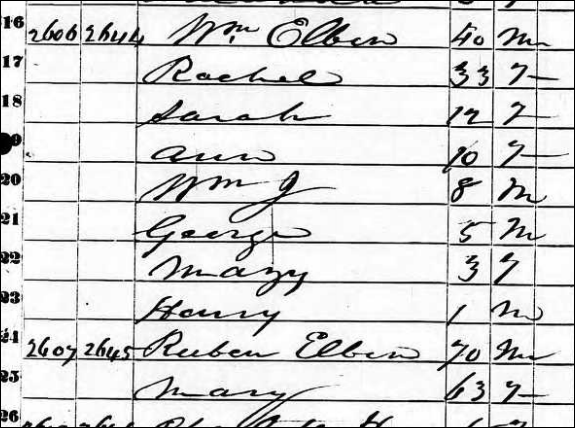 16 2606 2644 Wm Elben 40 m
17 Rachel 33 F
18 Sarah 12 F
9 Ann 10 F
20 Wm J 8 M
21 George 5 M
22 Mary 3 F
23 Henry 1 m
24 2607 2645 Reuben Elben 70 m
25 Mary 63 F
26